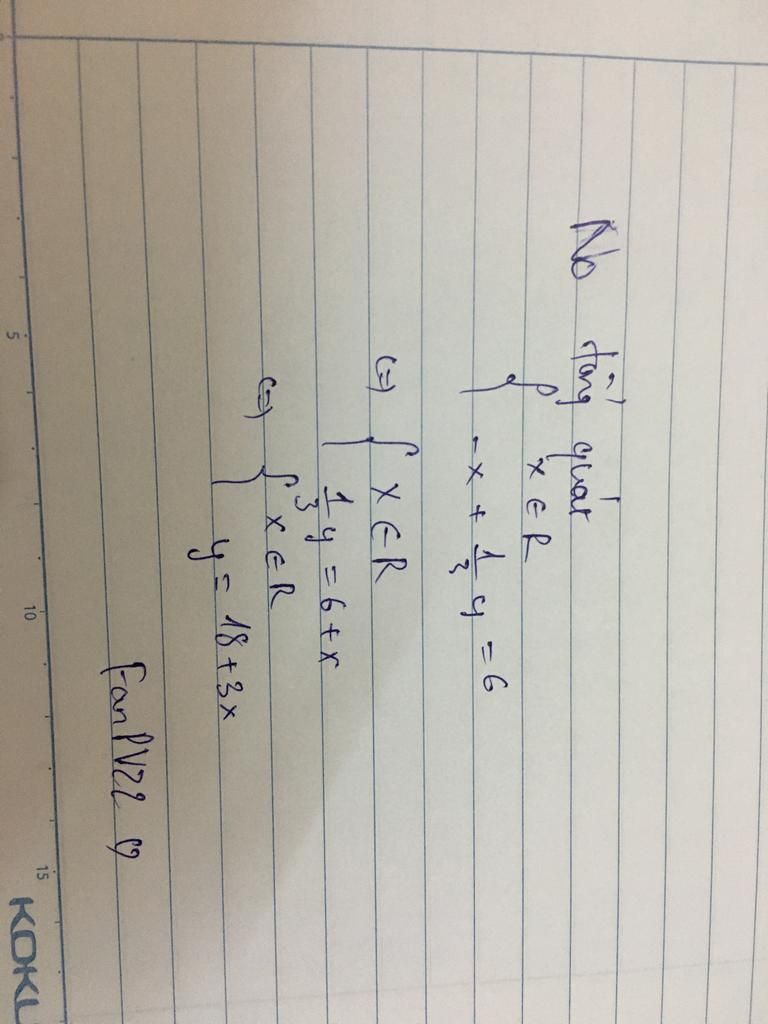 No tổng quát
{ x ∈ R
-x + 1/3 y = 6
(=) { x ∈ R
1/3 y = 6 + x
(=) { x ∈ R
y = 18 + 3x
FanPV22 ♡
5 10 15
KOKU